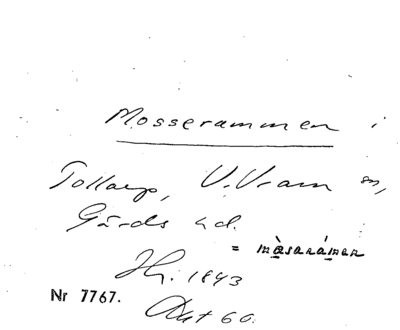 Mosserammen i
Tollarp, V. Vram sn,
Gärds hd.
= màsarámen
Hr. 1843
Nr 7767.
Akt 60.